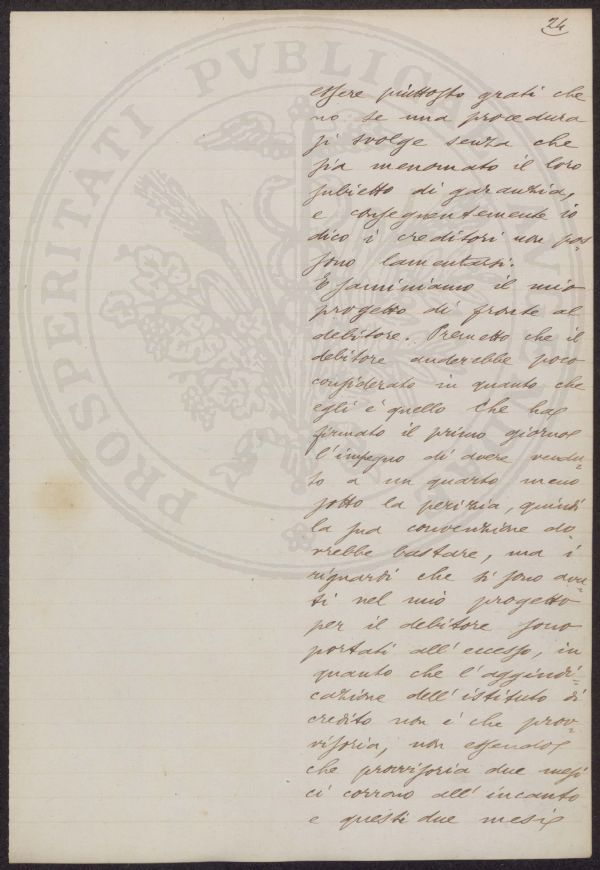 24
PROSPERITATI PVBLICAE AVGENDAE
essere piuttosto grati che
no se una procedura
si svolge senza che
sia menomato il loro
subietto di garanzia,
e conseguentemente io
dico i creditori non pos=
sono lamentarsi.
Esaminiamo il mio
progetto di fronte al
debitore. Premetto che il
debitore anderebbe poco
considerato in quanto che
egli è quello che ha
firmato il primo giorno
l'impegno di avere vendu=
to a un quarto meno
sotto la perizia, quindi
la sua convenzione do
vrebbe bastare, ma i
riguardi che si sono avu=
ti nel mio progetto
per il debitore sono
portati all'eccesso, in
quanto che l'aggiudi=
cazione dell'istituto di
credito non è che prov=
visoria, non essendo
che provvisoria due mesi
ci corrono all'incanto
e questi due mesi